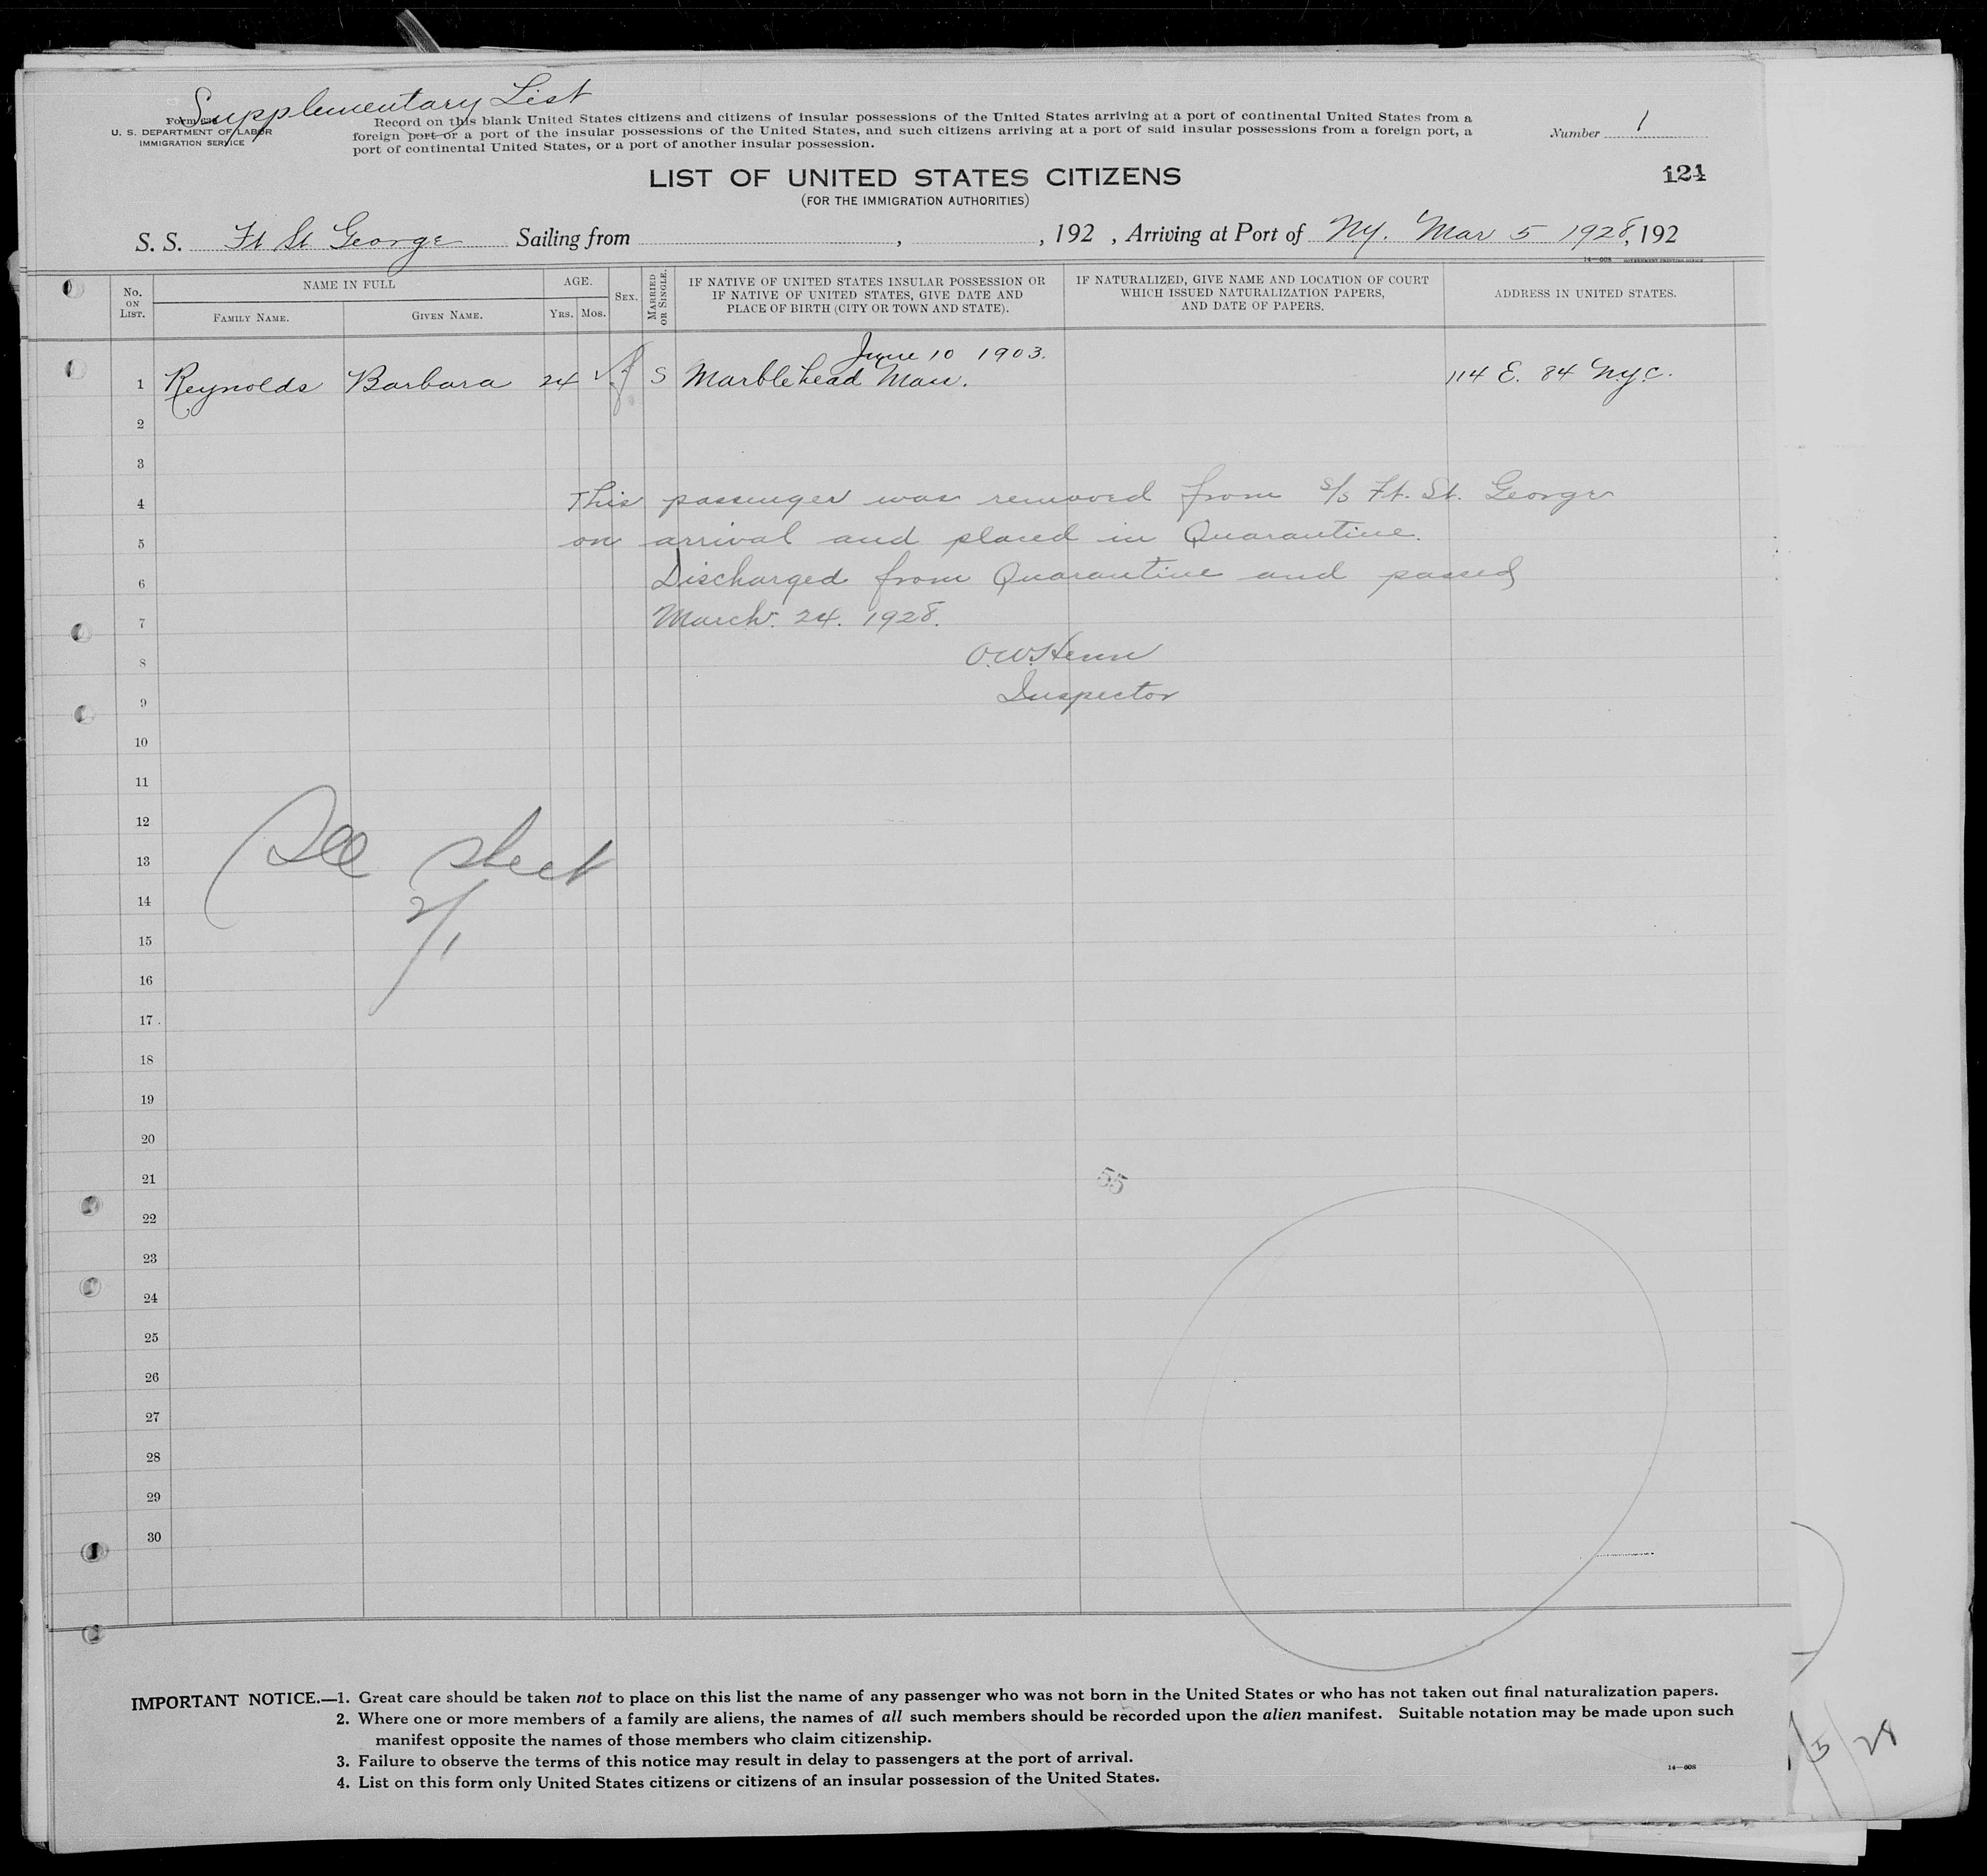 Supplementary List
Form 630
U. S. DEPARTMENT OF LABOR
IMMIGRATION SERVICE
Record on this blank United States citizens and citizens of insular possessions of the United States arriving at a port of continental United States from a
foreign port or a port of the insular possessions of the United States, and such citizens arriving at a port of said insular possessions from a foreign port, a
port of continental United States, or a port of another insular possession.
Number 1
LIST OF UNITED STATES CITIZENS
(FOR THE IMMIGRATION AUTHORITIES)
124
S. S. Ft St George Sailing from , , 192 , Arriving at Port of N.Y. Mar 5 1928, 192
14—608 GOVERNMENT PRINTING OFFICE
No. ON LIST.
NAME IN FULL
FAMILY NAME.
GIVEN NAME.
AGE.
YRS.
MOS.
SEX.
MARRIED OR SINGLE.
IF NATIVE OF UNITED STATES INSULAR POSSESSION OR
IF NATIVE OF UNITED STATES, GIVE DATE AND
PLACE OF BIRTH (CITY OR TOWN AND STATE).
IF NATURALIZED, GIVE NAME AND LOCATION OF COURT
WHICH ISSUED NATURALIZATION PAPERS,
AND DATE OF PAPERS.
ADDRESS IN UNITED STATES.
June 10 1903.
1 Reynolds Barbara 24 ✓ f S Marblehead Mass. 114 E. 84 N.Y.C.
2
3
4 This passenger was removed from S/S Ft. St. George
5 on arrival and placed in Quarantine.
6 Discharged from Quarantine and passed
7 March. 24. 1928.
8 O.W. Henn
9 Inspector
10
11
12
13 See sheet
14 2/1
15
16
17
18
19
20
21 55
22
23
24
25
26
27
28
29
30
IMPORTANT NOTICE.—1. Great care should be taken not to place on this list the name of any passenger who was not born in the United States or who has not taken out final naturalization papers.
2. Where one or more members of a family are aliens, the names of all such members should be recorded upon the alien manifest. Suitable notation may be made upon such
manifest opposite the names of those members who claim citizenship.
3. Failure to observe the terms of this notice may result in delay to passengers at the port of arrival.
4. List on this form only United States citizens or citizens of an insular possession of the United States.
14—608
/5/28